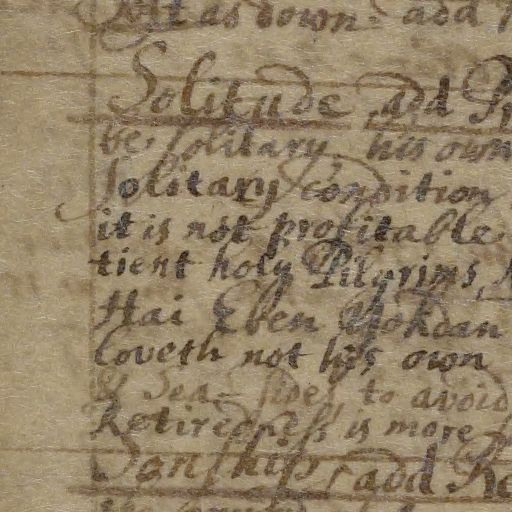 as down. add
Solitude, add Pr
be solitary, his own
solitary condition
it is not profitable.
tient holy Pilgrims,
Hai Eben Yokdan
loveth not his own
& Sea-sides, to avoid
Retiredness is more
Sonship, add Re